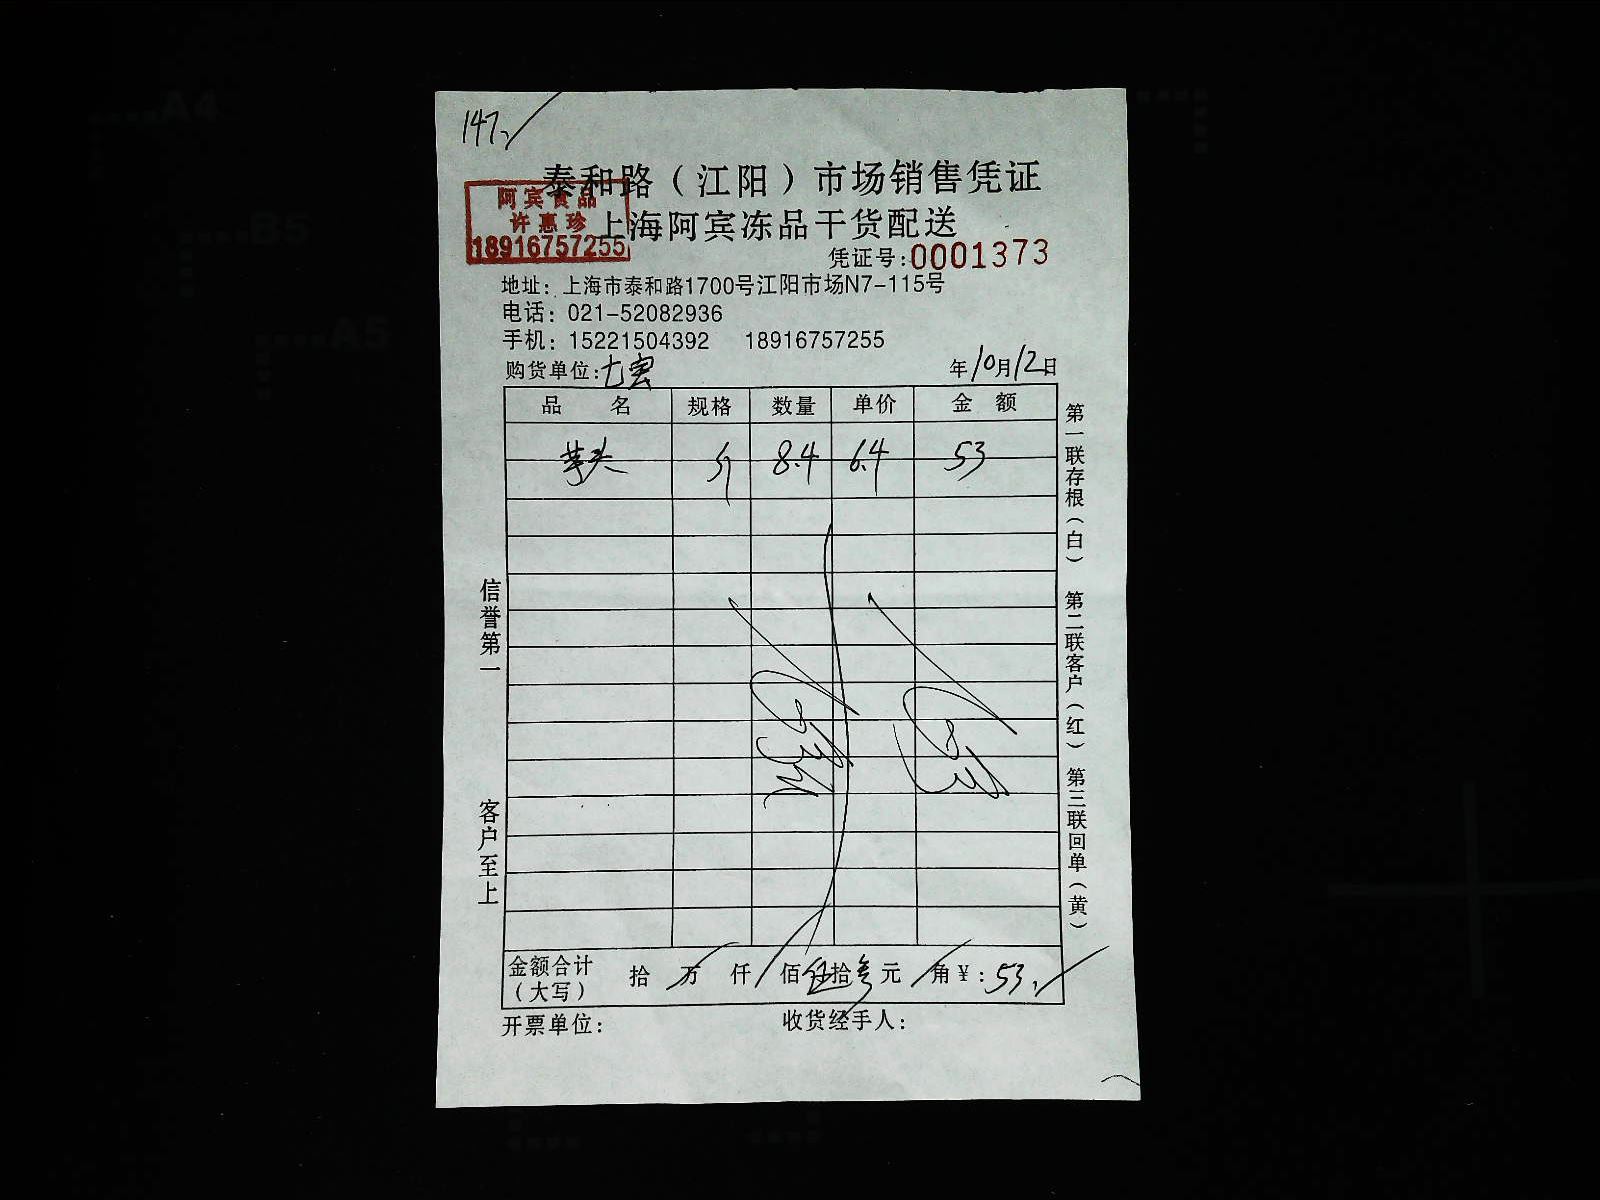 147.
泰和路（江阳）市场销售凭证
阿宾食品
许惠珍
18916757255
上海阿宾冻品干货配送
凭证号:0001373
地址：上海市泰和路1700号江阳市场N7-115号
电话：021-52082936
手机：15221504392 18916757255
购货单位:七宝 年10月12日
品 名 规格 数量 单价 金 额
芋头 8.4 6.4 53
信誉第一
客户至上
第一联存根（白） 第二联客户（红） 第三联回单（黄）
金额合计（大写） 拾 万 仟 佰伍拾叁元 角￥:53.
开票单位: 收货经手人: